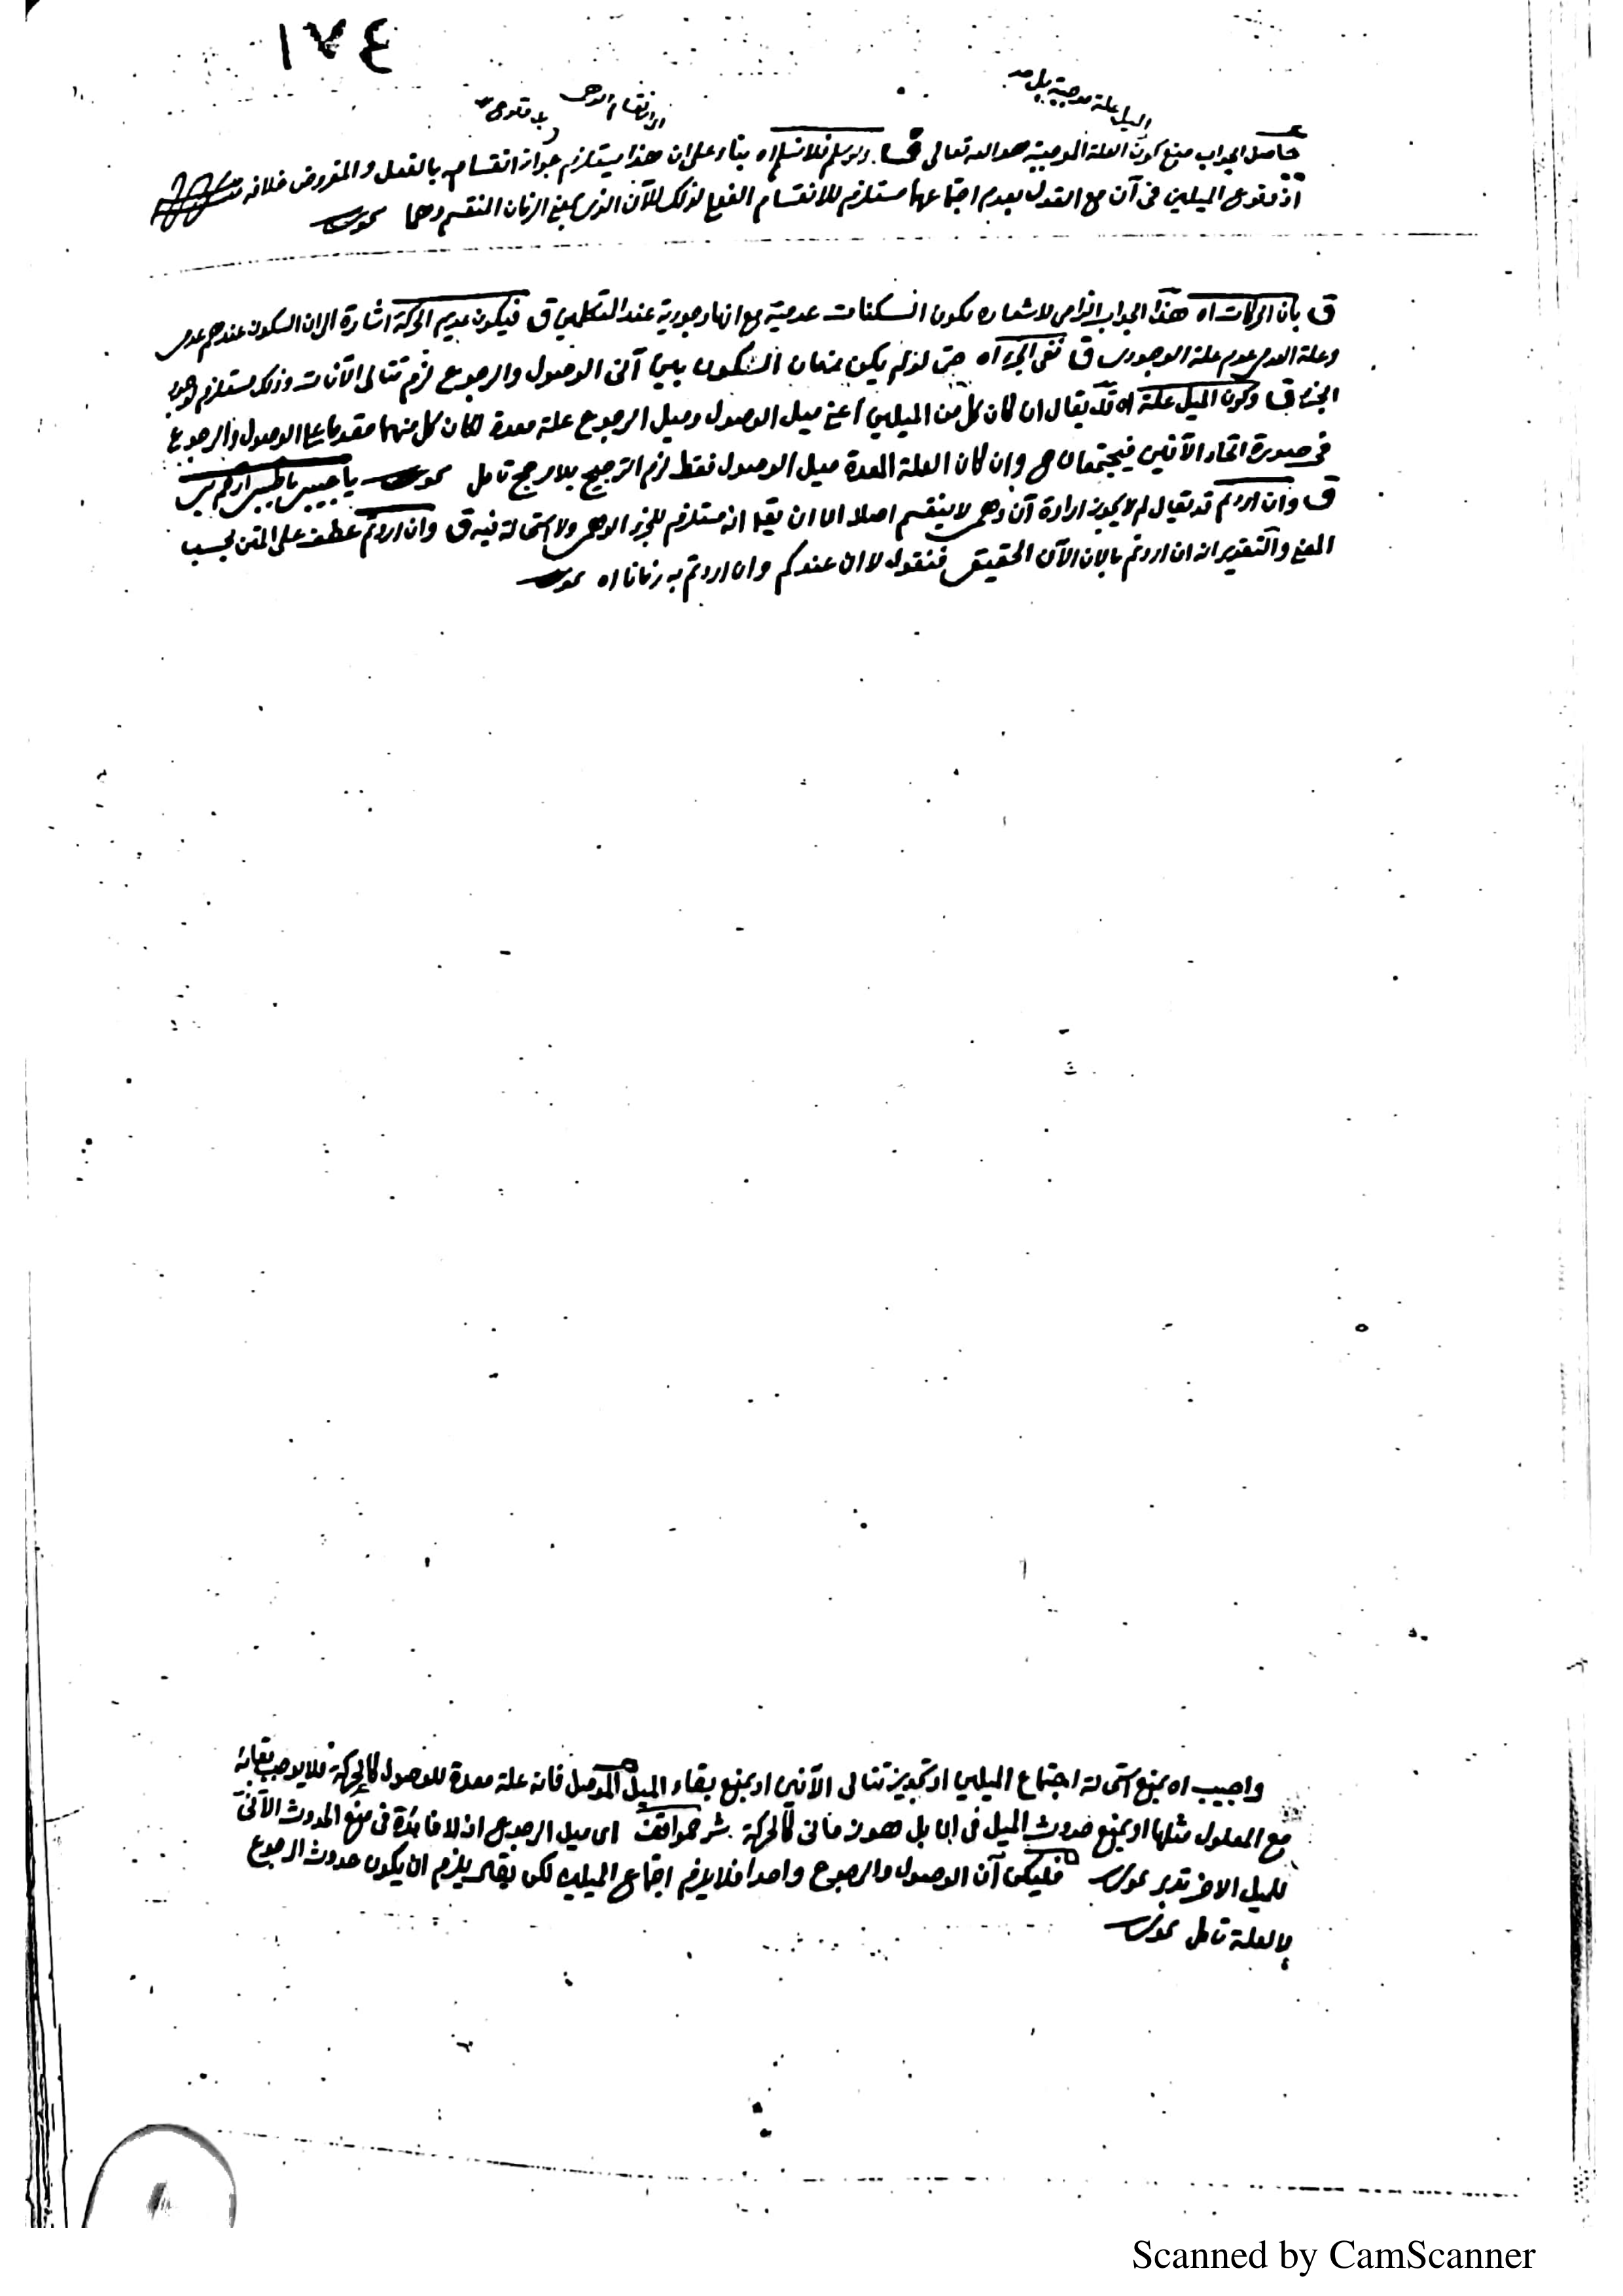 ١٧٤
الميل علة موجبة بل
الانقسام الوهمى
بلا وقوع
حاصل الجواب منع كون العلة الموجبة هو الله تعالى ولو سلم فلا نسلم اه بناء على ان هذا يستلزم جواز انقسامه بالفعل والمفروض خلافه
اذ وقوع الميلين فى آن مع القول بعدم اجتماعهما مستلزم للانقسام الفعلى لذلك الآن الذى بمعنى الزمان المنقسم وهما
ق بان الحركات اه هذا الجواب الزامى لاشعاره بكون السكنات عدمية مع انها وجودية عند المتكلمين ق فيكون عديم الحركة اشارة الى ان السكون عندهم عدمى
وعلة العدم عدم علة الوجودى ق نفى الجزء اه حتى لو لم يكن زمان السكون بين آنى الوصول والرجوع لزم تتالى الآنات وذلك مستلزم لوجود
الجزء ق وكون الميل علة اه قد يقال ان كان كل من الميلين اعنى ميل الوصول وميل الرجوع علة معدة لكان كل منهما مقدما على الوصول والرجوع
فى صورة اتحاد الآنين فيجتمعان ح وان كان العلة المعدة ميل الوصول فقط لزم الترجيح بلا مرجح تأمل
ق وان اردتم قد يقال لم لا يجوز ارادة آن وهمى لا ينقسم اصلا الا ان يقال انه مستلزم للجزء الوهمى ولا استحالة فيه ق وان اردتم عطف على المتن بحسب
المعنى والتقدير انه ان اردتم بالان الآن الحقيقى فنقول لا ان عندكم وان اردتم به زمانا اه
واجيب اه بمنع استحالة اجتماع الميلين او تجويز تتالى الآنين او بمنع بقاء الميل الموصل فانه علة معدة للوصول كالحركة فلا يوجب بقائه
مع المعلول مثلها او بمنع حدوث الميل فى ان بل هو زمانى كالحركة شرح مواقف اى ميل الرجوع اذ لا فائدة فى منع الحدوث الآنى
للميل الاخر تدبر فليكن آن الوصول والرجوع واحدا فلا يلزم اجتماع الميلين لكن يقال يلزم ان يكون حدوث الرجوع
بلا علة تأمل
Scanned by CamScanner